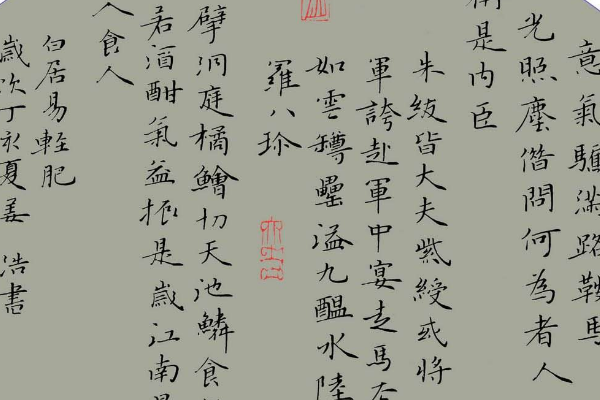 意氣驕滿路鞍馬
光照塵借問何為者人
是内臣
朱紱皆大夫紫綬或將
軍誇赴軍中宴走馬去
如雲罇罍溢九醞水陸
羅八珎
擘洞庭橘鱠切天池鱗食
若酒酣氣益振是歲江南
人食人
白居易輕肥
歲次丁夏姜浩書